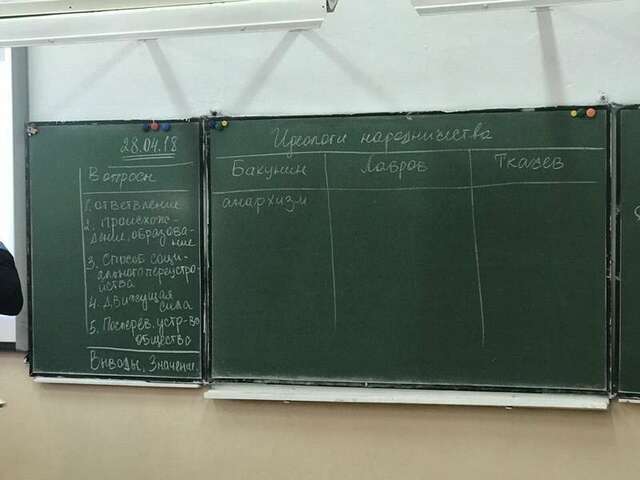 28.04.18
Вопросы
1. ответвление
2. происхож-
дение, образова-
ние
3. способ соци-
ального переустро-
йства
4. движущая
сила
5. Послерев. устр-во
общества
Выводы, Значение
Идеологи народничества
Бакунин Лавров Ткачев
анархизм